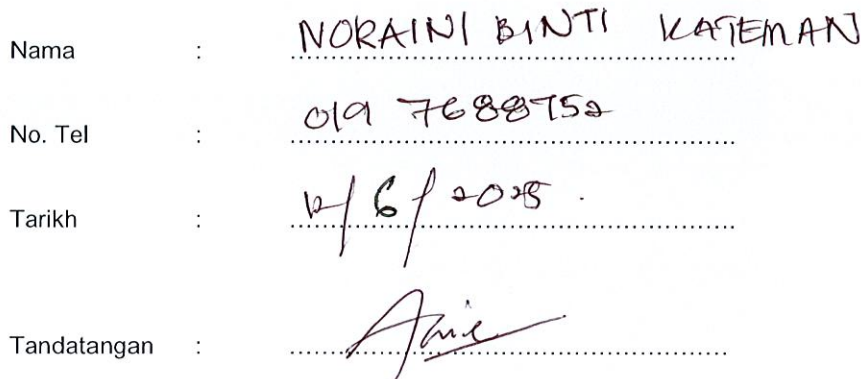 Nama : NORAINI BINTI KATEMAN
No. Tel : 019 7688752
Tarikh : 12/6/2025.
Tandatangan :